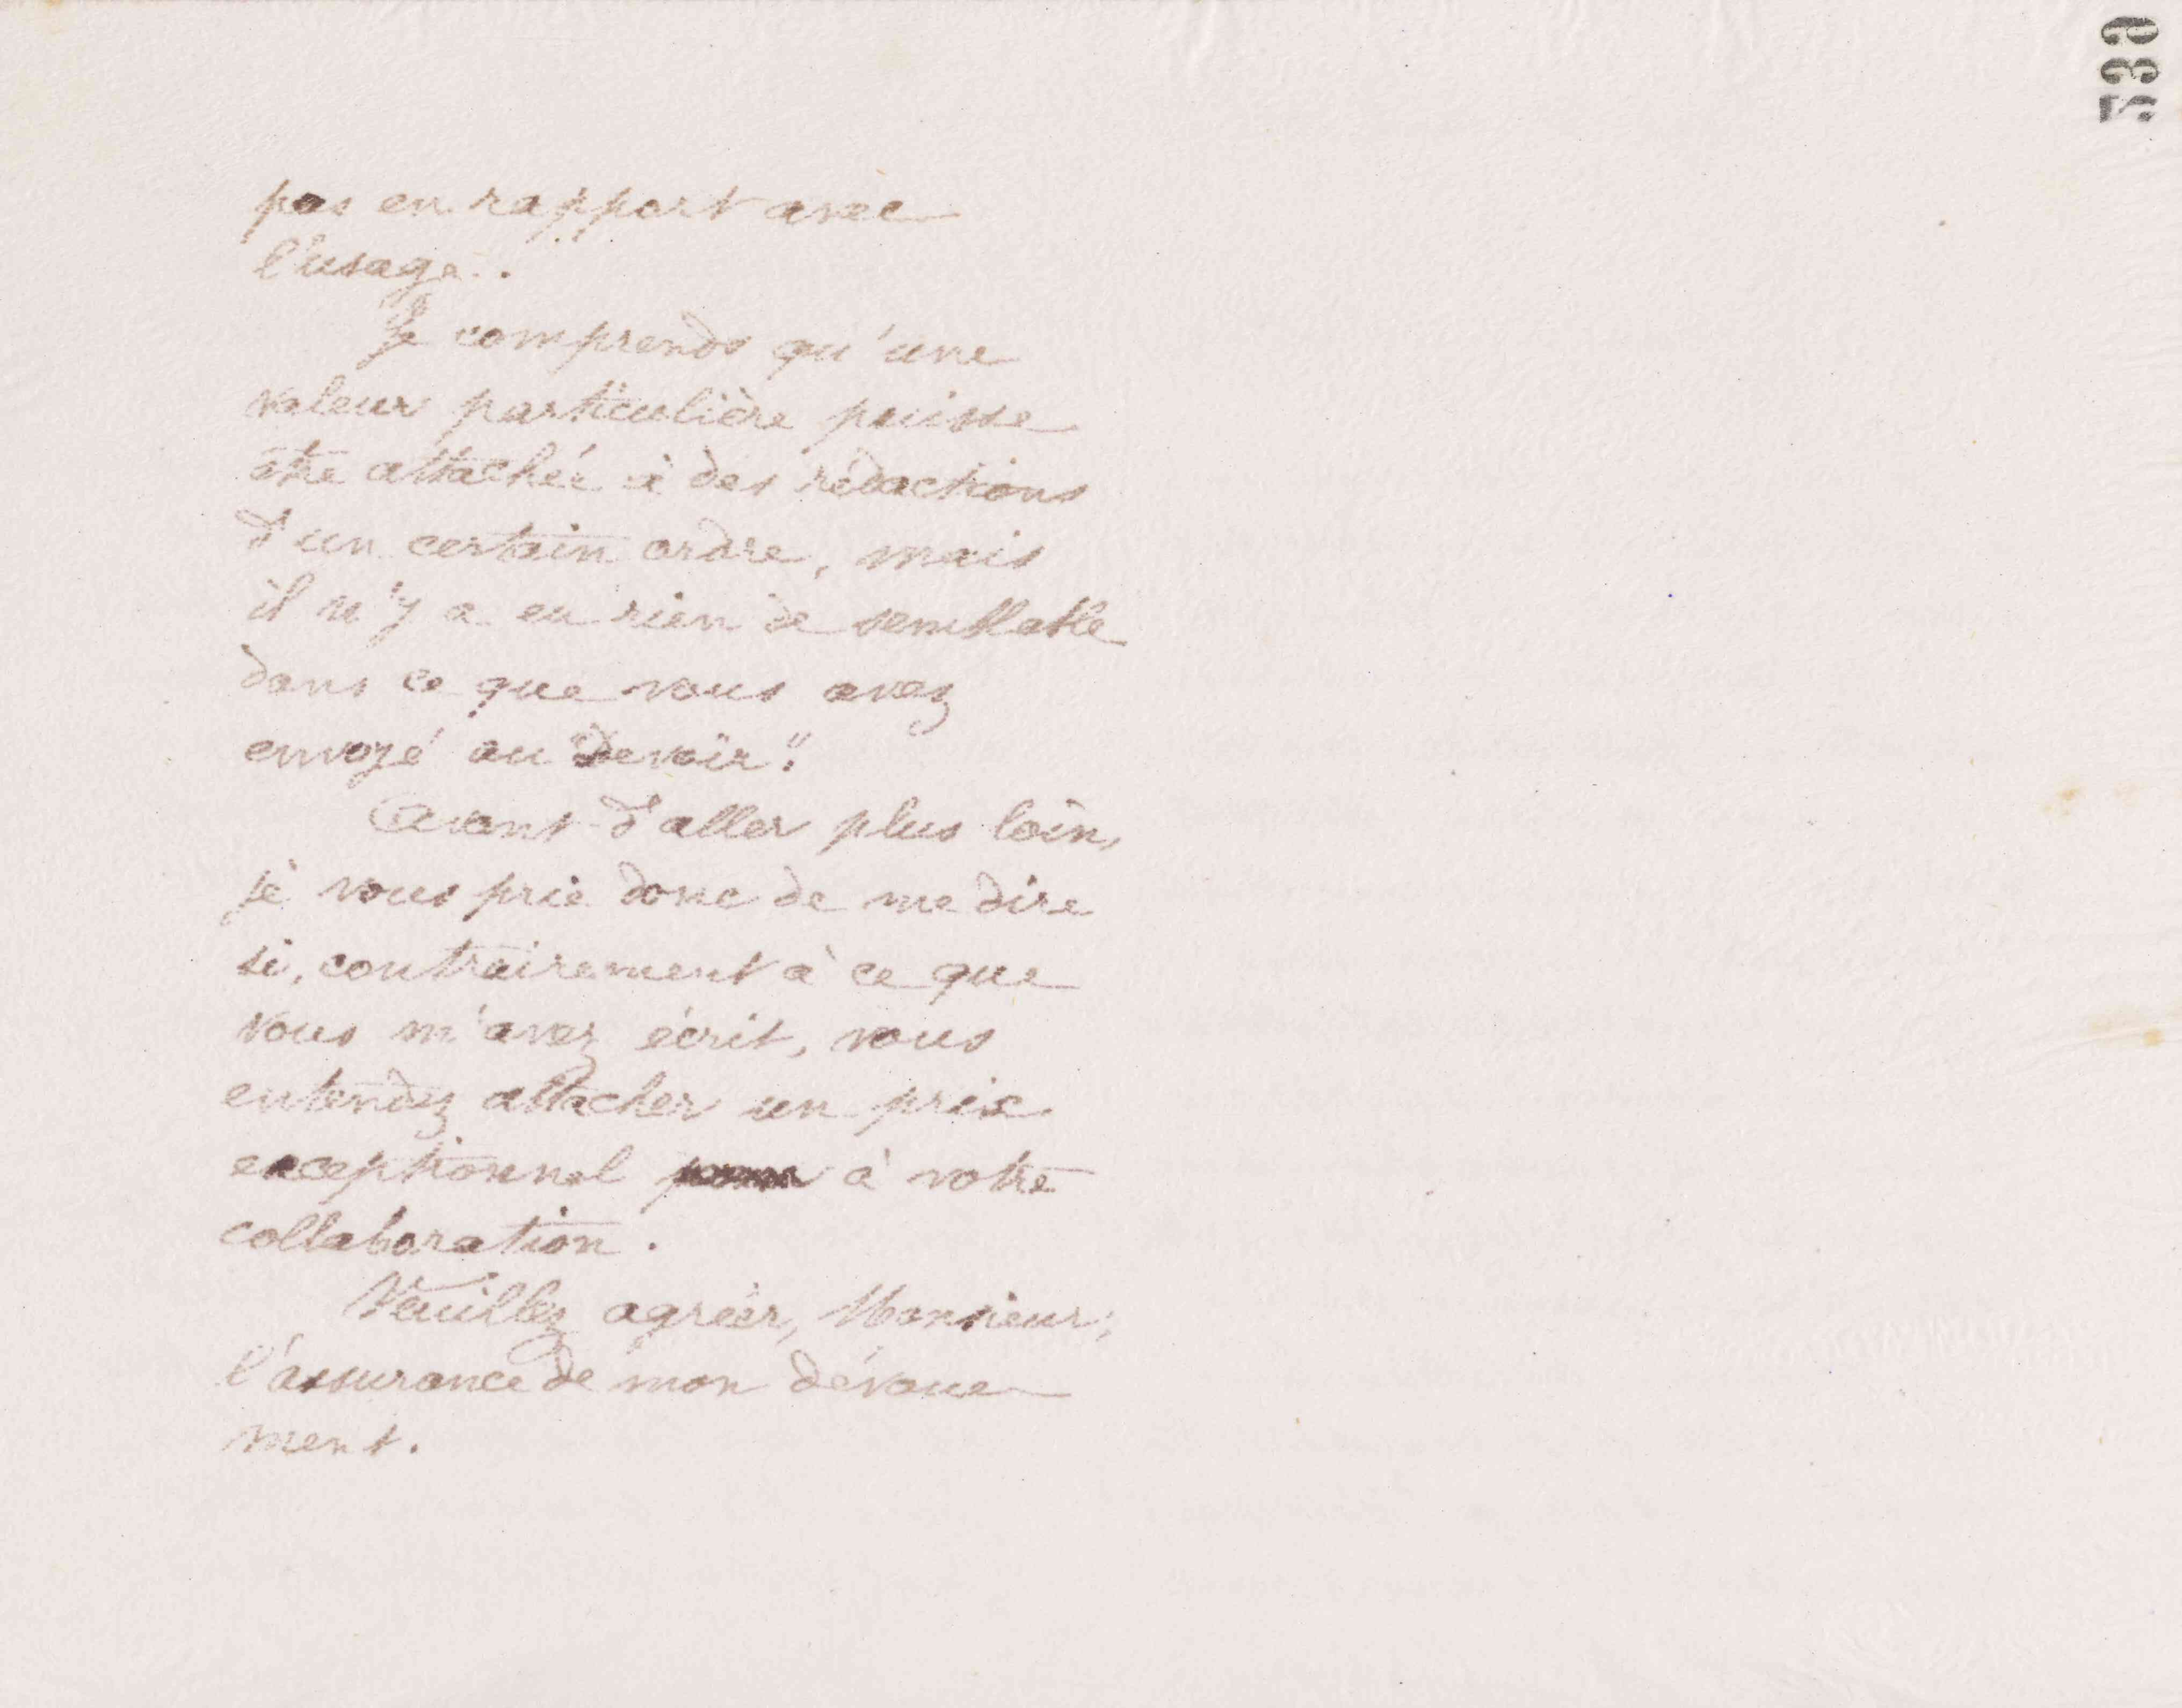 530
pas en rapport avec
l'usage.
Je comprends qu'une
valeur particulière puisse
être attachée à des rédactions
d'un certain ordre, mais
il n'y a eu rien de semblable
dans ce que vous avez
envoyé au "Devoir".
Avant d'aller plus loin,
je vous prie donc de me dire
si, contrairement à ce que
vous m'avez écrit, vous
entendez attacher un prix
exceptionnel à votre
collaboration.
Veuillez agréer, Monsieur,
l'assurance de mon dévoue
ment.